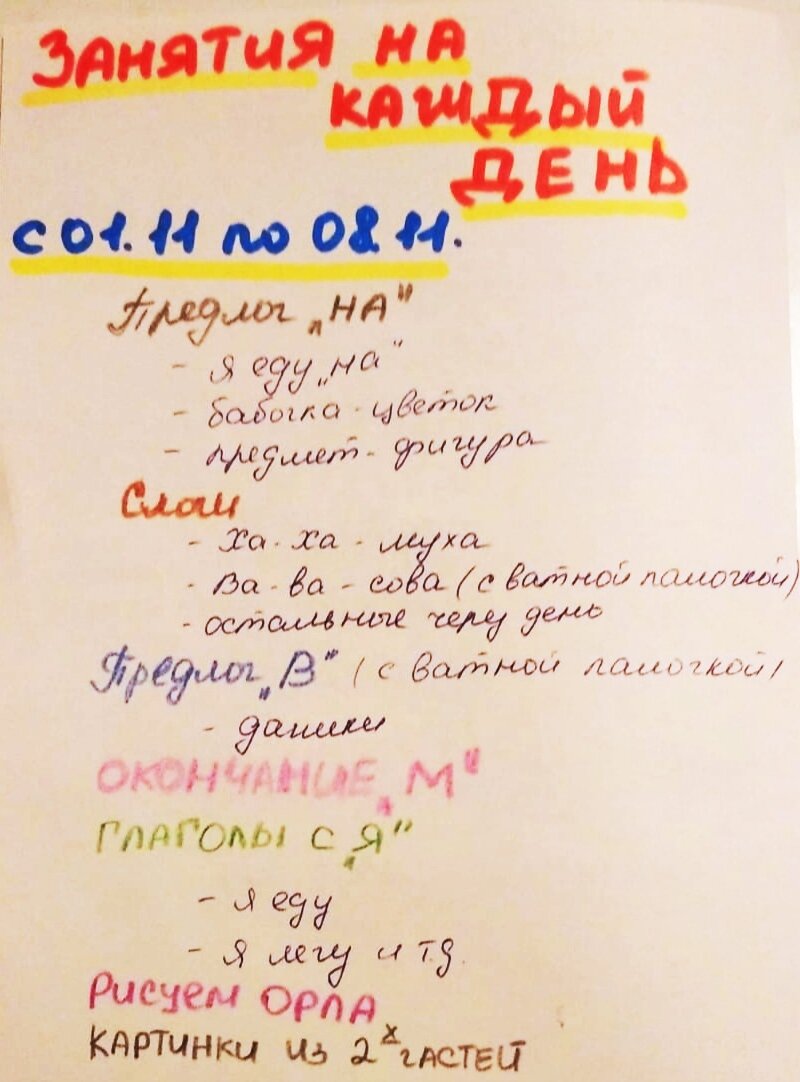 ЗАНЯТИЯ НА
КАЖДЫЙ
ДЕНЬ
с 01.11 по 08.11.
Предлог „НА"
- я еду „на"
- бабочка - цветок
- предмет - фигура
Слоги
- Ха - ха - муха
- Ва - ва - сова (с ватной палочкой)
- остальные через день
Предлог „В" (с ватной палочкой)
- домики
ОКОНЧАНИЕ „М"
ГЛАГОЛЫ С „Я"
- я еду
- я лечу и т.д.
РИСУЕМ ОРЛА
КАРТИНКИ ИЗ 2х ЧАСТЕЙ